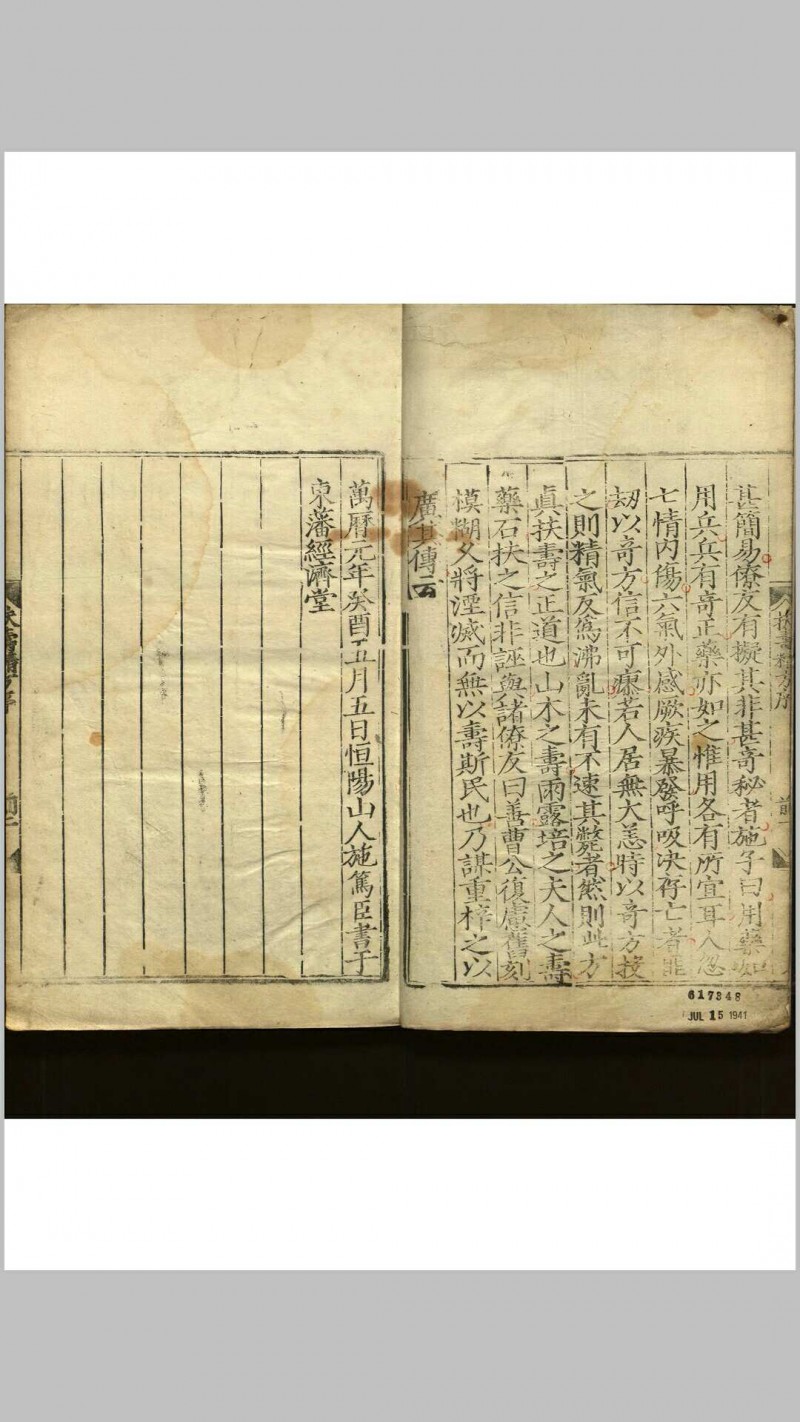 扶壽精方序
甚簡易僚友有擬其非甚奇秘者施子曰用藥如
用兵兵有奇正藥亦如之惟用各有所宜耳人忽
七情内傷六氣外感厥疾暴發呼吸决存亡者非
刼以奇方信不可療若人居無大恙時以奇方投
之則精氣反爲沸亂未有不速其斃者然則此方
眞扶壽之正道也山木之壽雨露培之夫人之壽
藥石扶之信非誣與諸僚友曰善曹公復慮舊刻
模糊久將湮滅而無以壽斯民也乃謀重梓之以
廣其傳云
萬曆元年癸酉五月五日恒陽山人施篤臣書于
東藩經濟堂
扶壽精方序
617348
JUL 15 1941